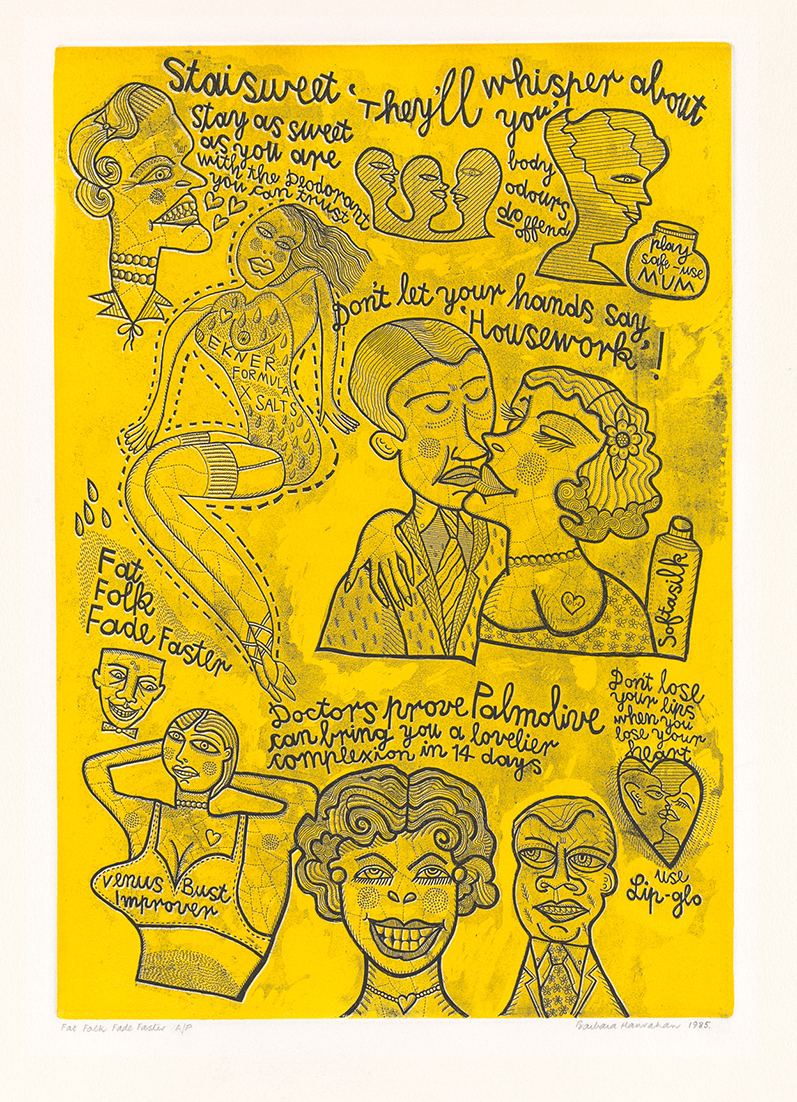 Staisweet
Stay as sweet
as you are
with the Deodorant
you can trust
'They'll whisper about
you'
body
odours
do
offend
play
safe-use
MUM
Don't let your hands say,
'Housework'!
EKNER
FORMULA
X SALTS
Softasilk
Fat
Folk
Fade Faster
Doctors prove Palmolive
can bring you a lovelier
complexion in 14 days
Don't lose
your lips
when you
lose your
heart
use
Lip-glo
Venus Bust
Improver
Fat Folk Fade Faster A/P
Barbara Hanrahan 1985.